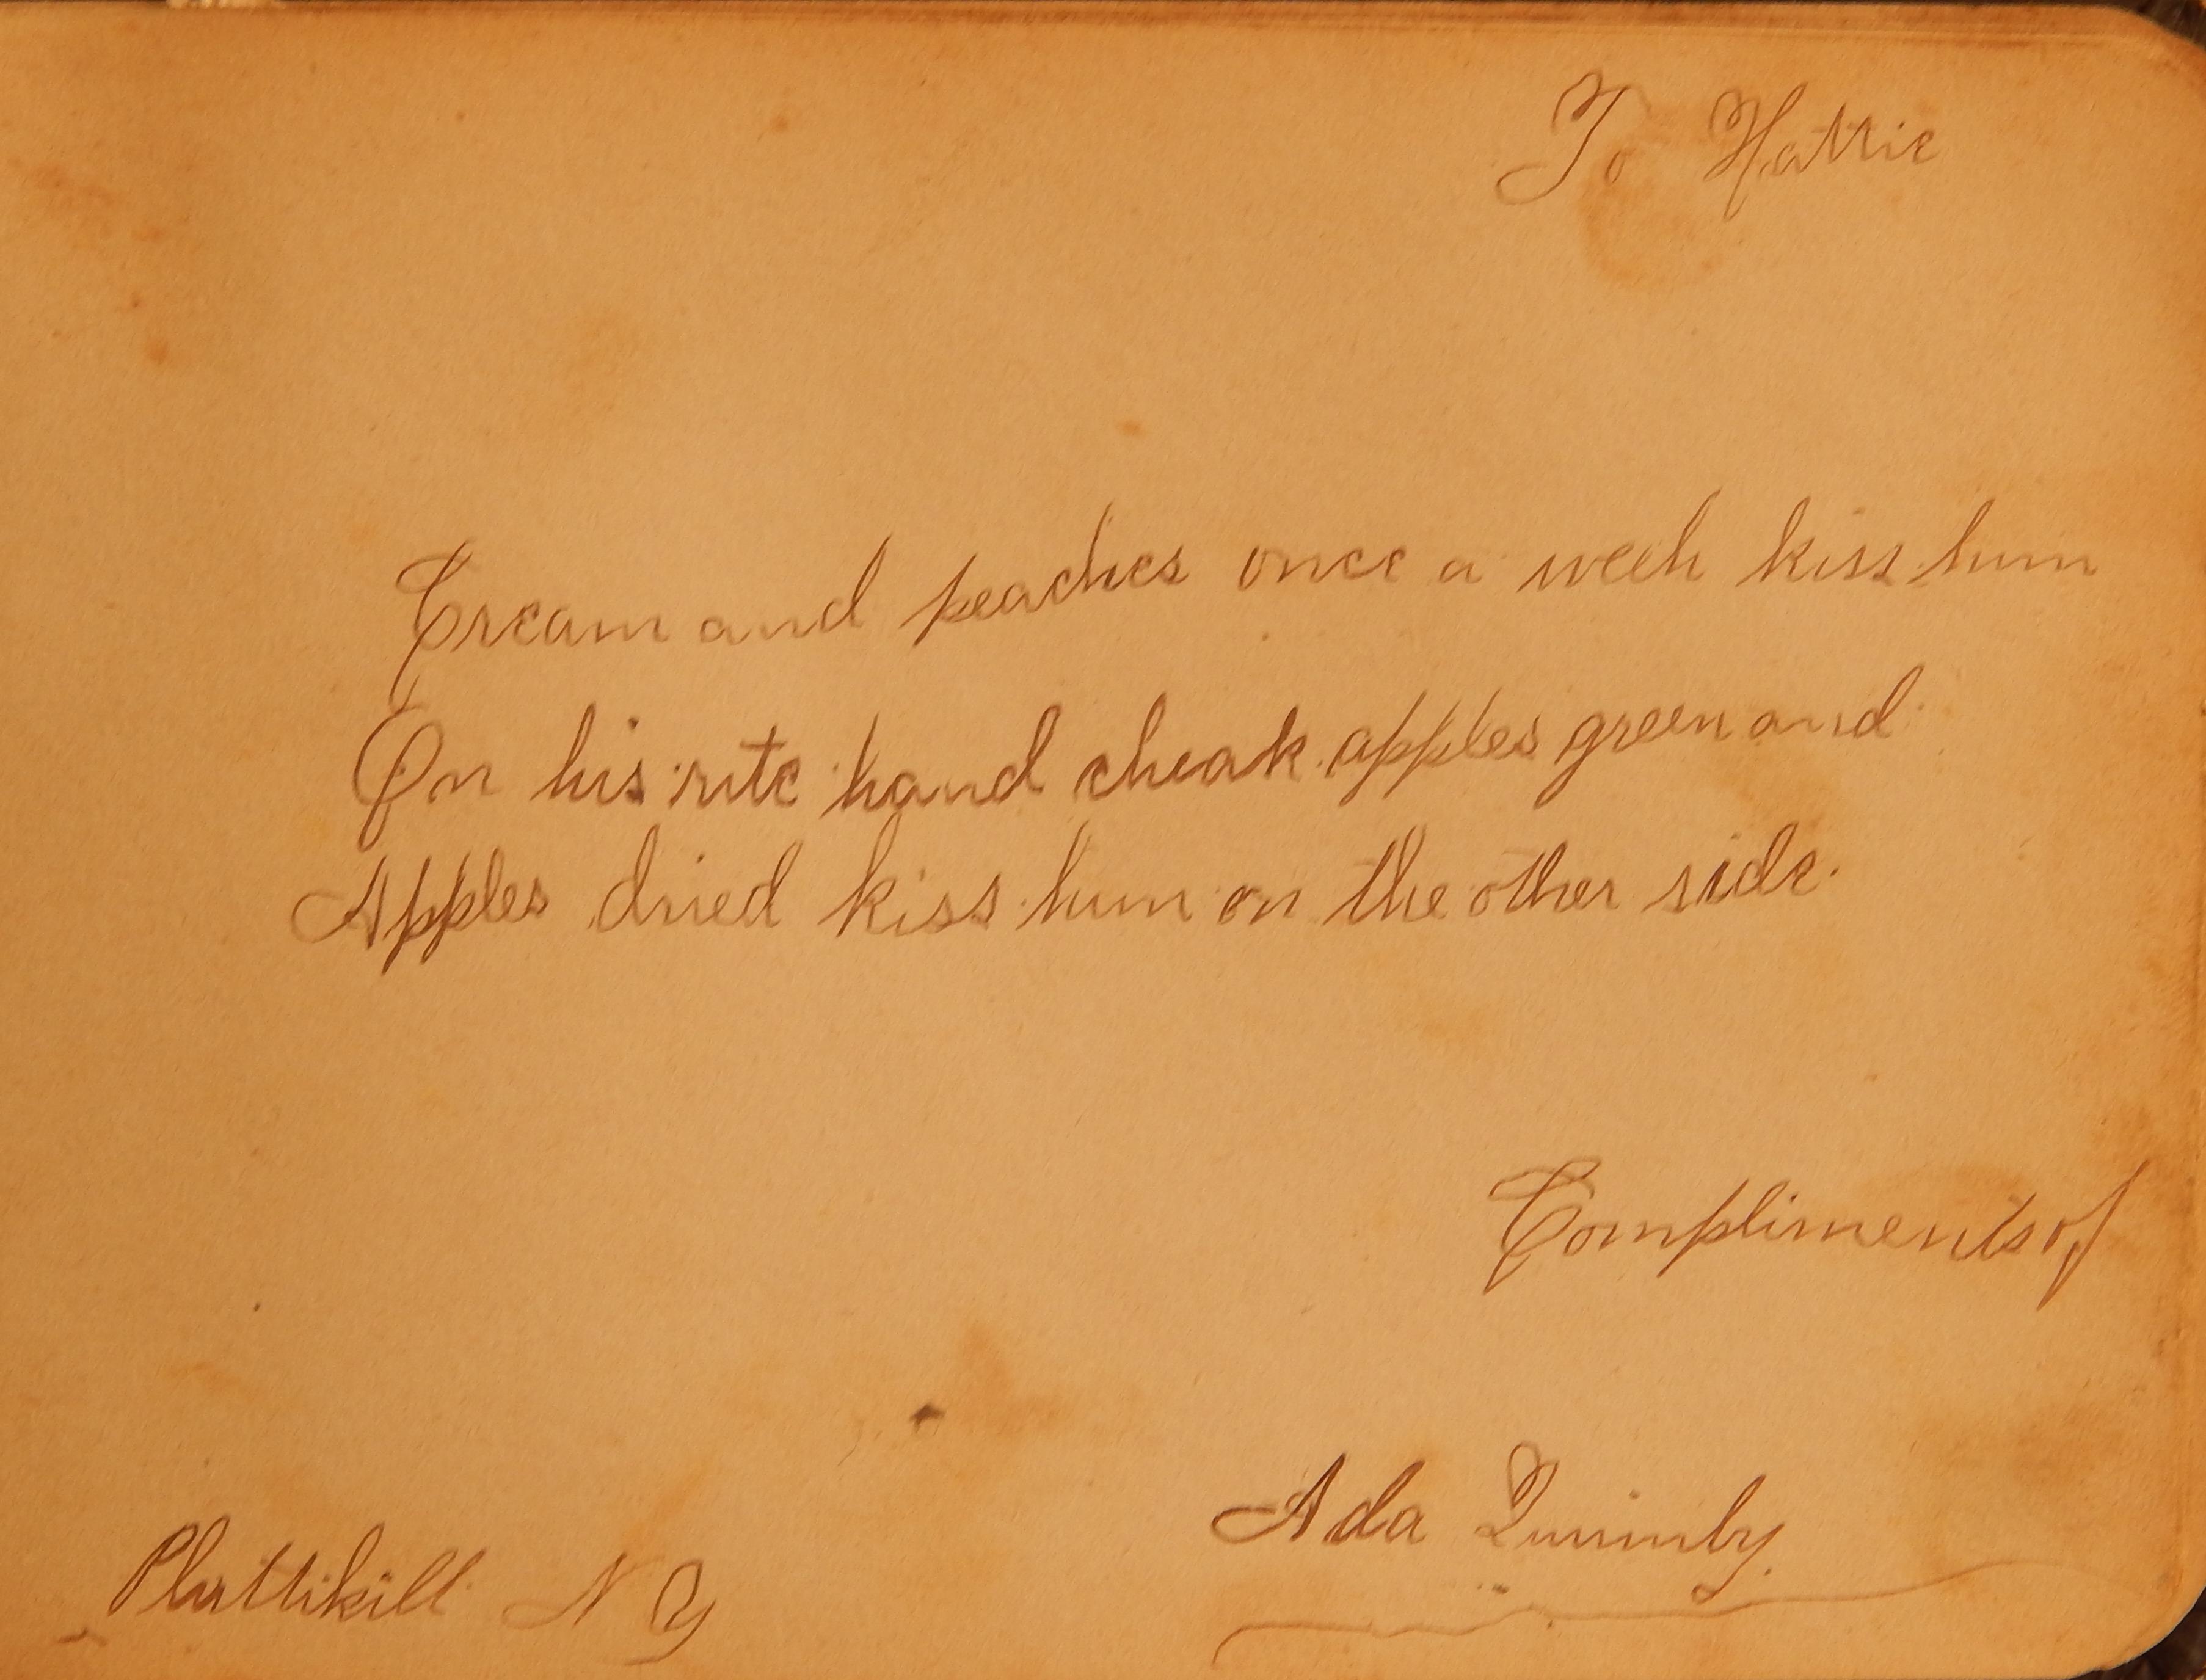 To Hattie
Cream and peaches once a week kiss him
On his rite hand cheak apples green and
Apples dried kiss him on the other side.
Compliments of
Ada Quimby.
Plattikill N Y